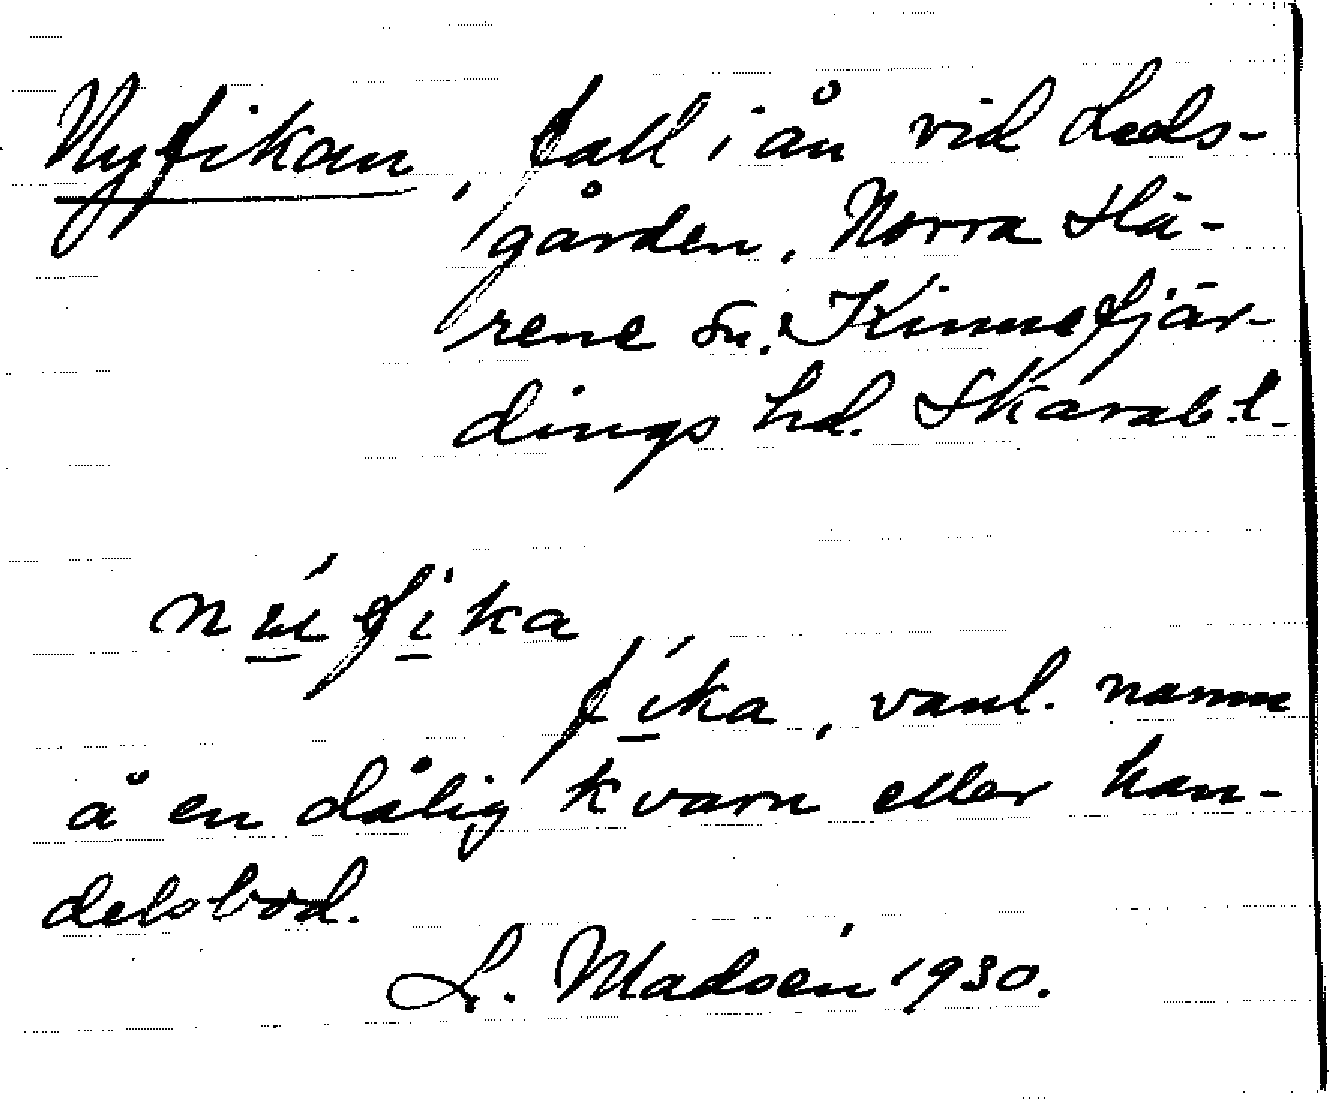 Nyfikan, fall i ån vid Leds-
gården, Norra Hä-
rene sn. Kinnefjär-
dings hd. Skarab. l.
núfika
fíka, vanl. namn
å en dålig kvarn eller han-
delsbod.
L. Madsén 1930.